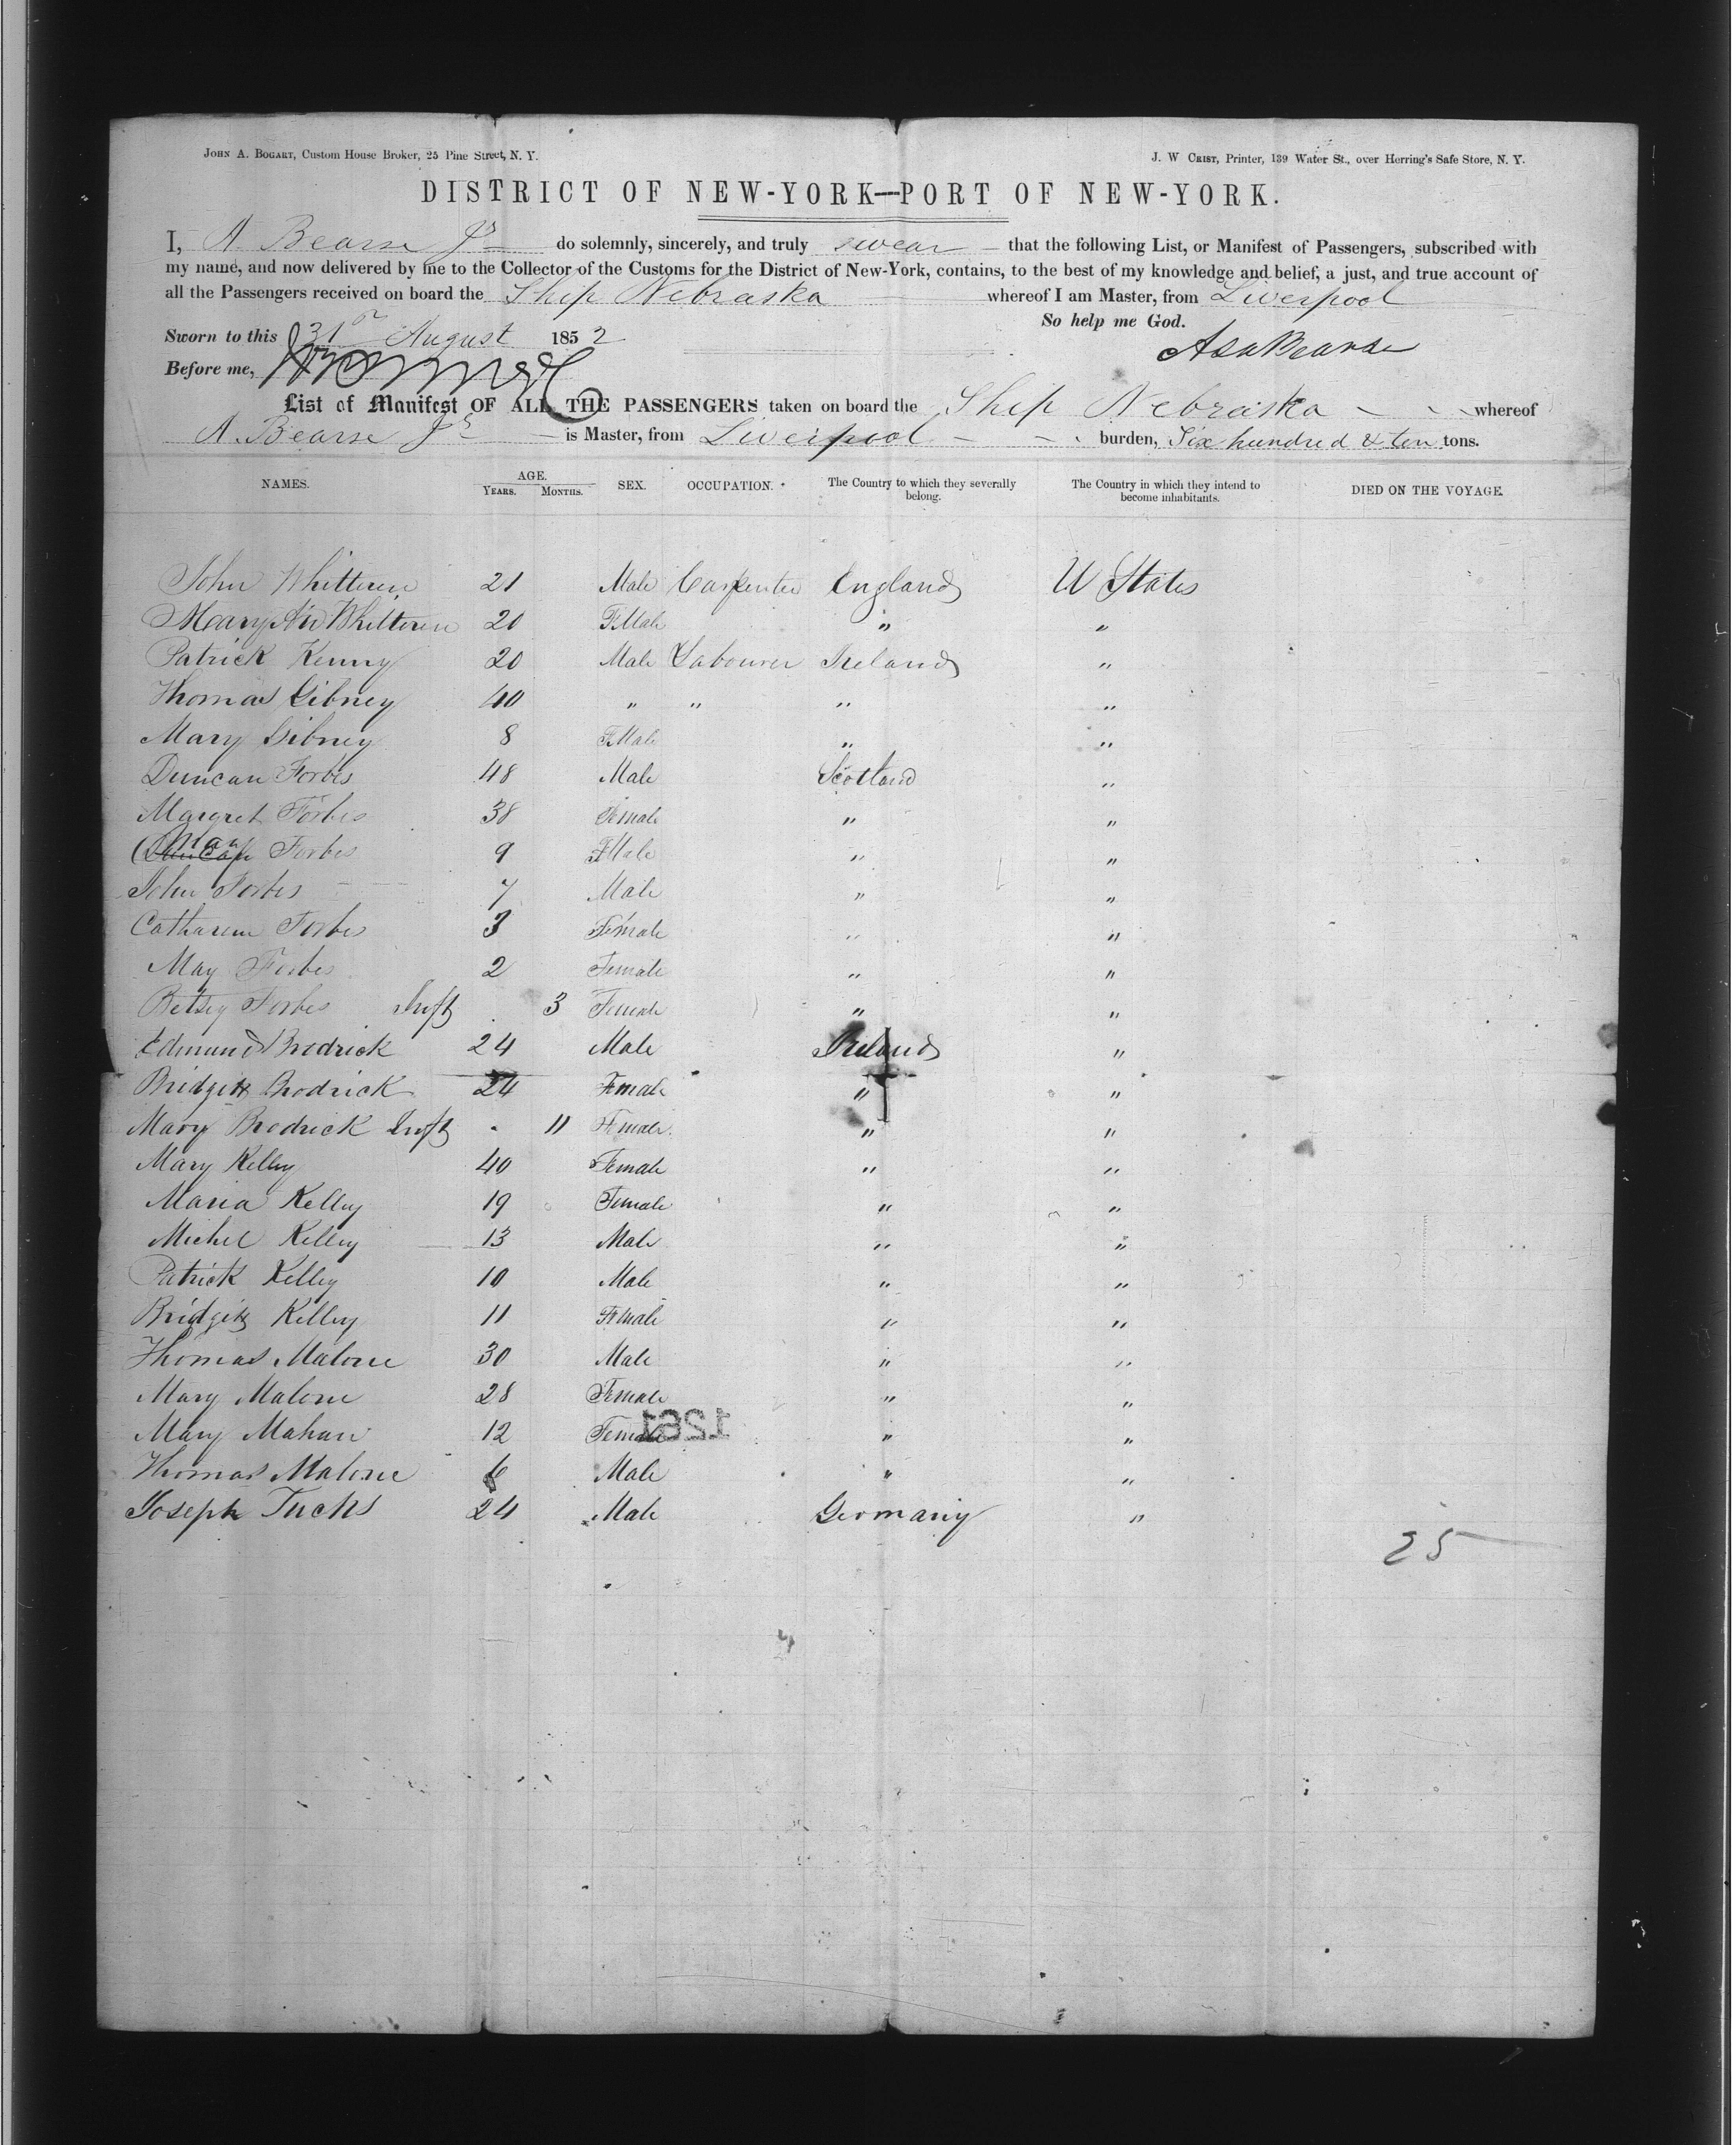 JOHN A. BOGART, Custom House Broker, 25 Pine Street, N. Y.
J. W CRIST, Printer, 139 Water St., over Herring's Safe Store, N. Y.
DISTRICT OF NEW-YORK—PORT OF NEW-YORK.
I, A. Bearse Jr do solemnly, sincerely, and truly swear that the following List, or Manifest of Passengers, subscribed with
my name, and now delivered by me to the Collector of the Customs for the District of New-York, contains, to the best of my knowledge and belief, a just, and true account of
all the Passengers received on board the Ship Nebraska whereof I am Master, from Liverpool
So help me God.
Sworn to this 31 August 1852
Asa Bearse
Before me,
List of Manifest OF ALL THE PASSENGERS taken on board the Ship Nebraska whereof
A. Bearse Jr is Master, from Liverpool burden, Six hundred & ten tons.
NAMES. AGE. YEARS. MONTHS. SEX. OCCUPATION. The Country to which they severally belong. The Country in which they intend to become inhabitants. DIED ON THE VOYAGE.
John Whitteren 21 Male Carpenter England U States
Mary Ann Whitteren 20 FMale " "
Patrick Kenny 20 Male Labourer Ireland "
Thomas Gibney 40 " " " "
Mary Gibney 8 FMale " "
Duncan Forbes 48 Male Scotland "
Margret Forbes 38 Female " "
Forbes 9 FMale " "
John Forbes 7 Male " "
Catharine Forbes 3 Female " "
May Forbes 2 Female " "
Betsey Forbes Inft 3 Female " "
Edmund Brodrick 24 Male Ireland "
Bridgitt Brodrick 24 Female " "
Mary Brodrick Inft 11 Female " "
Mary Kelley 40 Female " "
Maria Kelley 19 Female " "
Michel Kelley 13 Male " "
Patrick Kelley 10 Male " "
Bridgitt Kelley 11 Female " "
Thomas Malone 30 Male " "
Mary Malone 28 Female " "
Mary Mahan 12 Female " "
1261
Thomas Malone 6 Male " "
Joseph Fuchs 24 Male Germany "
25